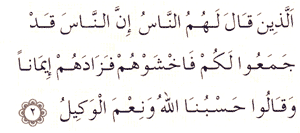 اَلَّذِينَ قَالَ لَهُمُ النَّاسُ إِنَّ النَّاسَ قَدْ
جَمَعُوا لَكُمْ فَاخْشَوْهُمْ فَزَادَهُمْ إِيمَانًا
وَقَالُوا حَسْبُنَا اللهُ وَنِعْمَ الْوَكِيلُ ٢